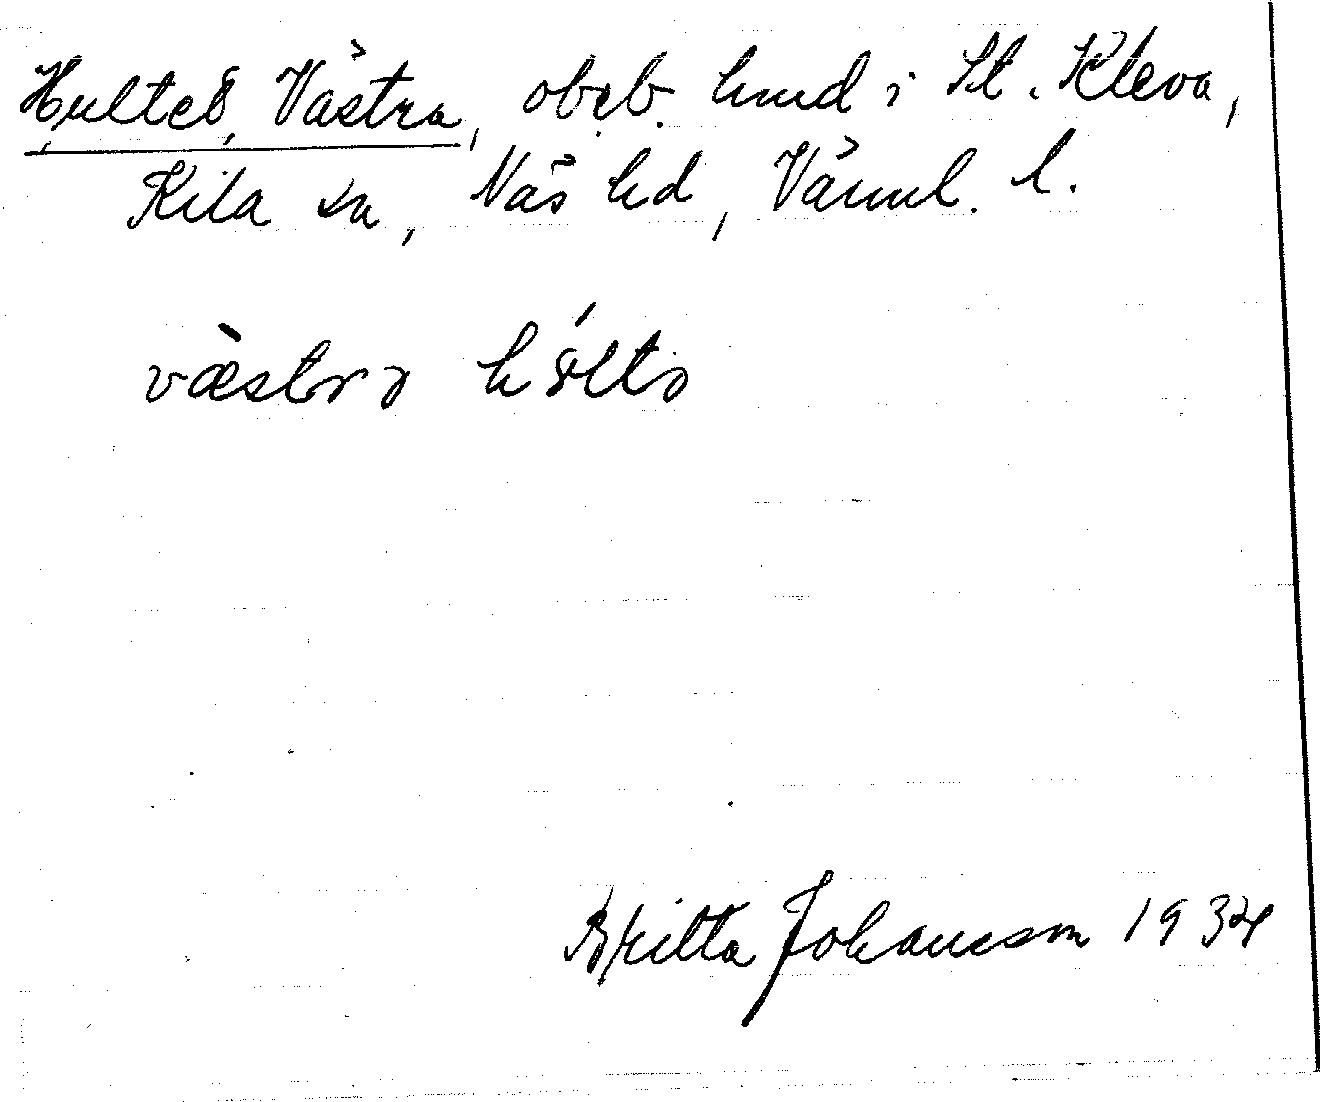 Hultet, Västra, obeb. hmd i St. Kleva,
Kila sn, Näs hd, Värml. l.
væstrə hölto
Britta Johansson 1934